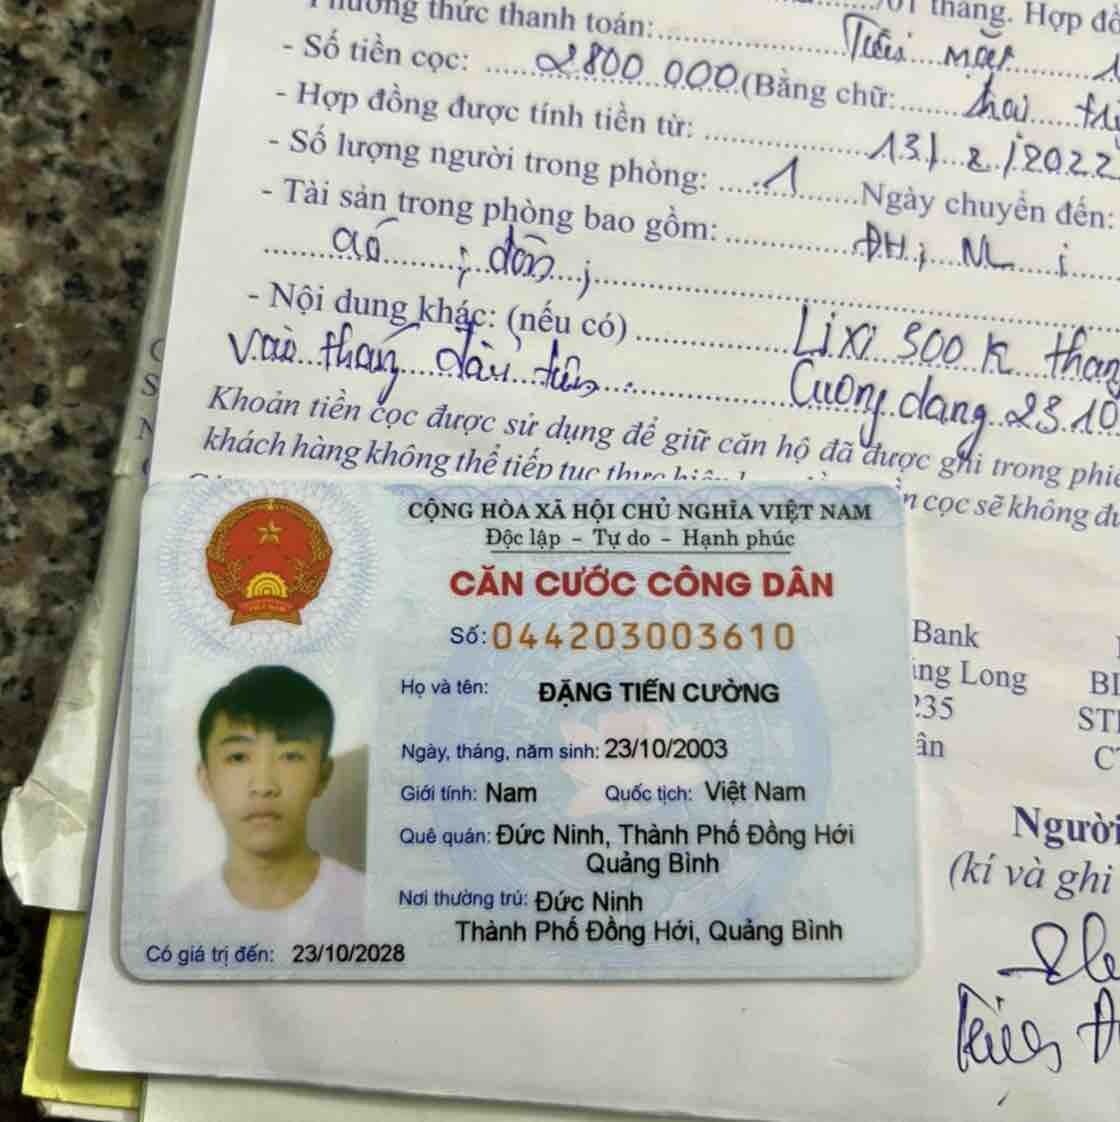 Phương thức thanh toán: Tiền mặt
/01 tháng. Hợp đồ
- Số tiền cọc: 2800 000 (Bằng chữ: hai
- Hợp đồng được tính tiền từ: 13/ 2 /2022
- Số lượng người trong phòng: 1 Ngày chuyển đến:
- Tài sản trong phòng bao gồm: ĐH; ML ;
; đồn ;
- Nội dung khác: (nếu có) Lixi 300 K
vào tháng đầu tiên Cuong dang 23.10
Khoản tiền cọc được sử dụng để giữ căn hộ đã được ghi trong phiế
khách hàng không thể tiếp tục thực hiện
n cọc sẽ không đư
CỘNG HÒA XÃ HỘI CHỦ NGHĨA VIỆT NAM
Độc lập - Tự do - Hạnh phúc
CĂN CƯỚC CÔNG DÂN
Số: 044203003610
Họ và tên: ĐẶNG TIẾN CƯỜNG
Ngày, tháng, năm sinh: 23/10/2003
Giới tính: Nam Quốc tịch: Việt Nam
Quê quán: Đức Ninh, Thành Phố Đồng Hới
Quảng Bình
Nơi thường trú: Đức Ninh
Thành Phố Đồng Hới, Quảng Bình
Có giá trị đến: 23/10/2028
Bank
ng Long BI
235 ST
ân C
Người
(kí và ghi